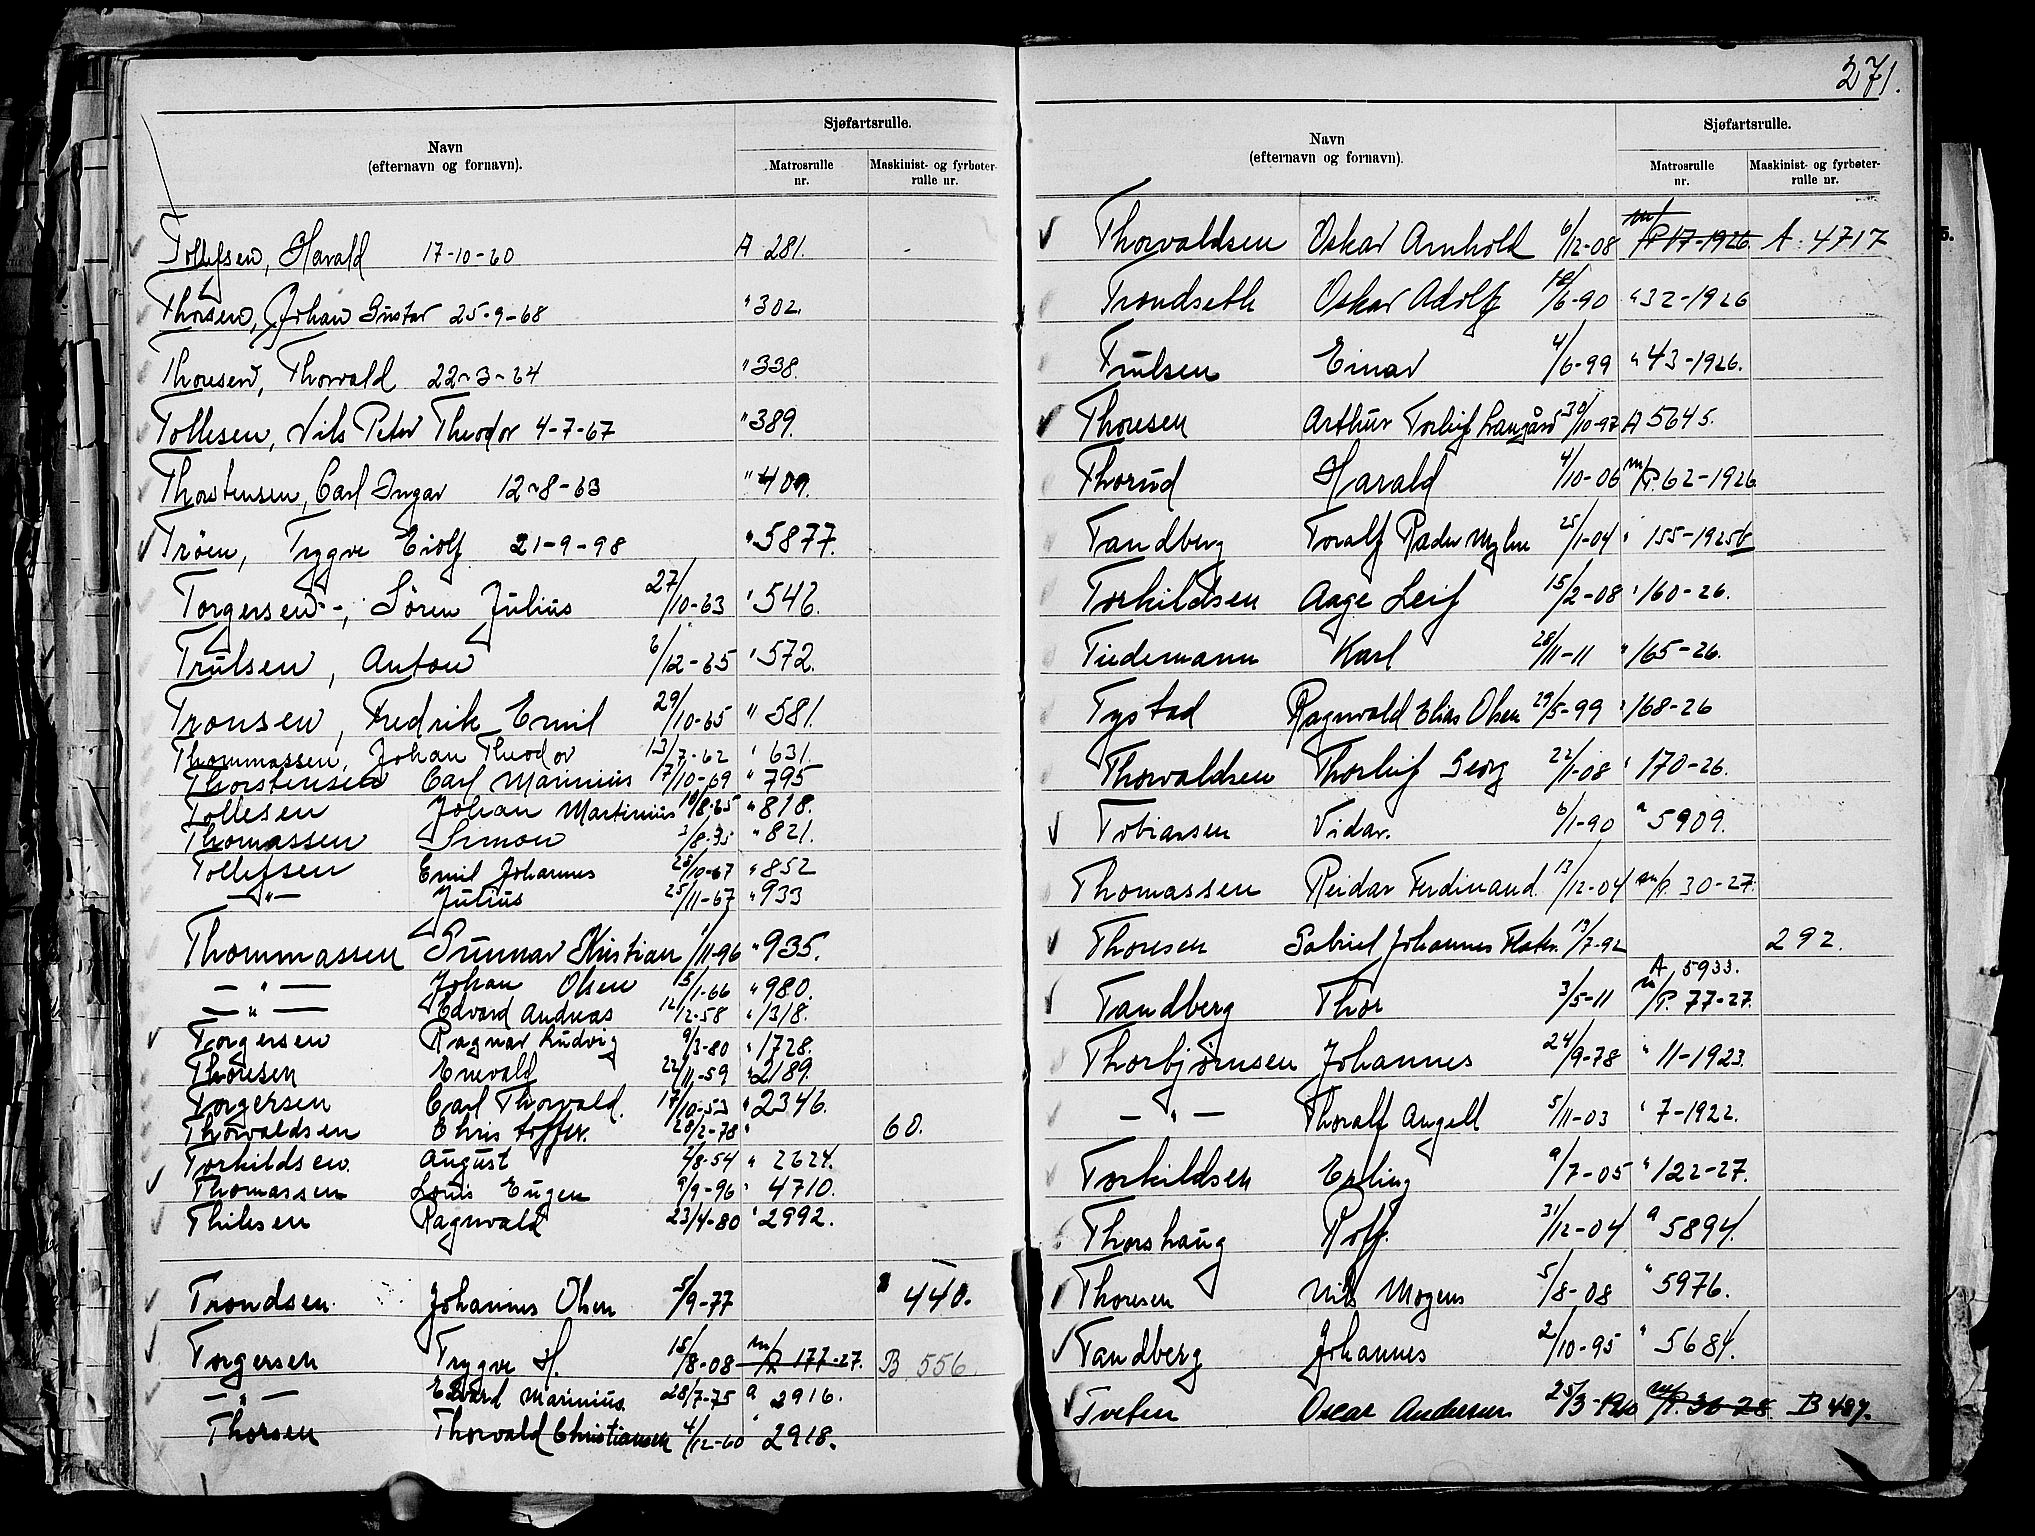 Navn
(efternavn og fornavn).
Sjøfartsrulle.
Matrosrulle nr.
Maskinist- og fyrbøter-rulle nr.
Tollefsen, Harald 17-10-60 A 281.
Thorsen, Johan Gustav 25-9-68 " 302.
Thoresen, Thorvald 22-3-64 " 338.
Tollesen, Nils Peter Theodor 4-7-67 " 389.
Thorstensen, Carl Ingar 12-8-63 " 409.
Trøen, Trygve Eiolf 21-9-98 " 5877.
Torgersen, Sören Julius 27/10-63 " 546.
Trulsen, Anton 6/12-65 " 572.
Tronsen, Fredrik Emil 29/10-65 " 581.
Thommassen, Johan Theodor 13/7-62 " 631.
Thorstensen Carl Marinius 17/10-69 " 795
Tollesen Johan Martinius 10/8-65 " 818.
Thomassen Simon " 821.
Tollefsen Emil Johannes 28/10-67 " 852
— " — Julius 25/11-67 " 933
Thommassen Gunnar Kristian 1/11-96 " 935.
— " — Johan Olsen 5/1-66 " 980.
— " — Edvard Andreas 12/12-58 " 1318.
Torgersen Ragnar Ludvig 9/3-80 " 1728.
Thoresen Enevald 22/11-59 " 2189.
Torgersen Carl Thorvald. 17/10-53 " 2346.
Thorvaldsen Christoffer. 28/2-78 " 60.
Torkildsen August 2/8-54 " 2624.
Thomassen Louis Eugen 9/9-96 " 4710.
Thilesen Ragnvald 23/4-80 " 2992.
Trondsen Johannes Olsen 5/9-77 " 440.
Torgersen Trygve H. 15/8-08 m/P. 177-27. B 556.
— " — Edvard Marinius 28/7-75 a 2916.
Thorsen Thorvald Christiansen 4/12-60 " 2918.
271.
Navn
(efternavn og fornavn).
Sjøfartsrulle.
Matrosrulle nr.
Maskinist- og fyrbøter-rulle nr.
Thorvaldsen Oskar Arnhold 6/12-08 m/P 17-1926 A: 4717
Trondseth Oskar Adolf 10/6-90 " 32-1926
Trulsen Einar 4/6-99 " 43-1926.
Thoresen Arthur Torleif Langård 30/10-97 A 5645.
Thorud Harald 4/10-06 m/P. 62-1926
Tandberg Toralf Rader Myhre 25/1-04 " 155-1925
Torkildsen Aage Leif 15/2-08 " 160-26.
Tiedemann Karl 28/11-11 " 165-26.
Tystad Ragnvald Elias Olsen 29/5-99 " 168-26
Thorvaldsen Thorleif Georg 22/1-08 " 170-26.
Tobiassen Vidar. 6/1-90 a 5909.
Thomassen Reidar Ferdinand 13/12-04 m/P. 30-27.
Thoresen Gabriel Johannes 19/7-92 292.
Tandberg Thor 3/5-11 A 5933. m/P. 77-27.
Thorbjørnsen Johannes 24/9-78 " 11-1923.
— " — Thoralf Angell 5/11-03 " 7-1922.
Torkildsen Erling 9/7-05 " 122-27.
Thorshaug Rolf. 31/12-04 a 5894.
Thoresen Nils Mogens 5/8-08 " 5976.
Tandberg Johannes 2/10-95 " 5684.
Tveten Oscar Andersen 25/3- m/P. 30-28. B 487.